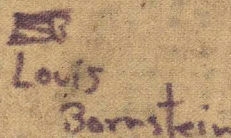 Louis
Bornstein